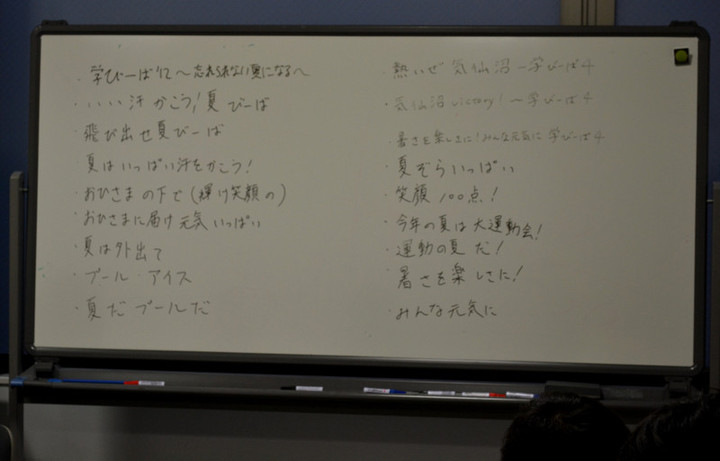 ・学びーば12〜忘れられない夏になる〜
・いい汗かこう！夏びーば
・飛び出せ夏びーば
・夏はいっぱい汗をかこう！
・おひさまの下で(輝け笑顔の)
・おひさまに届け元気いっぱい
・夏は外出て
・プール アイス
・夏だプールだ
・熱いぜ気仙沼ー学びーば4
・気仙沼victory!〜学びーば4
・暑さを楽しさに！みんな元気に学びーば4
・夏ぞらいっぱい
・笑顔100点！
・今年の夏は大運動会！
・運動の夏だ！
・暑さを楽しさに！
・みんな元気に